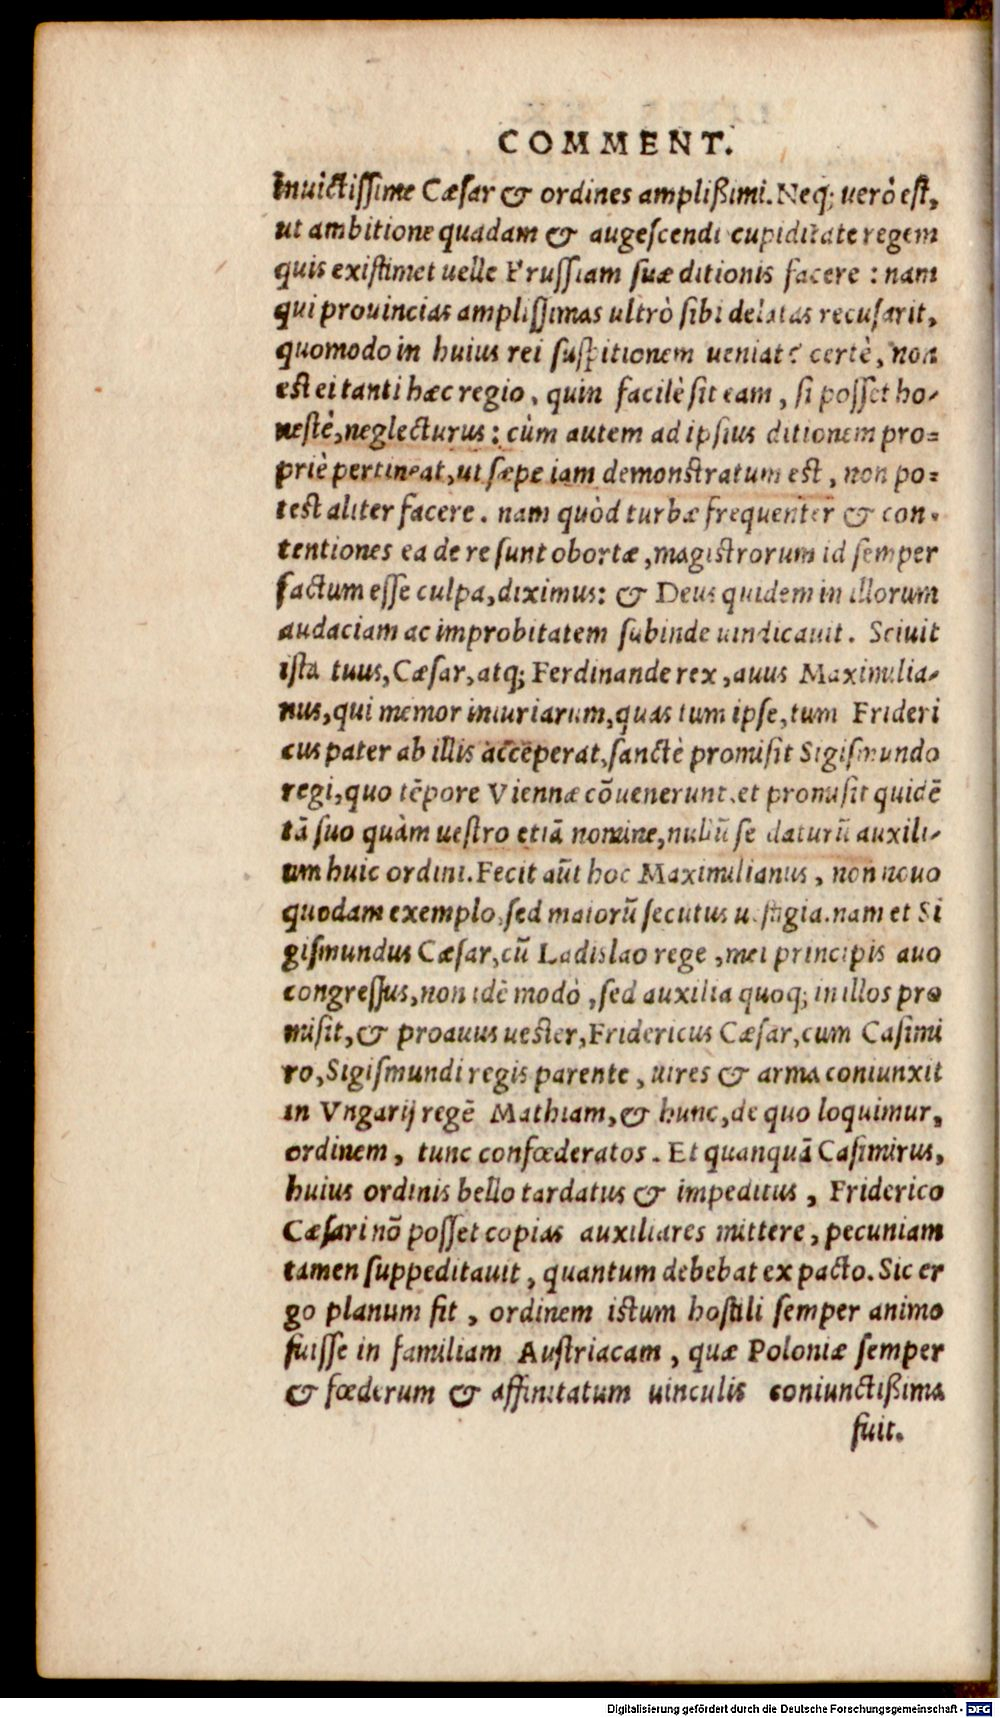 COMMENT.
Inuictissime Cæsar & ordines amplißimi. Neq; uerò est,
ut ambitione quadam & augescendi cupiditate regem
quis existimet uelle Prussiam suæ ditionis facere : nam
qui prouincias amplissimas ultrò sibi delatas recusarit,
quomodo in huius rei suspitionem ueniat? certè, non
est ei tanti hæc regio, quin facilè sit eam, si posset ho-
nestè, neglecturus: cùm autem ad ipsius ditionem pro=
priè pertineat, ut sæpe iam demonstratum est, non po=
test aliter facere. nam quòd turbæ frequenter & con-
tentiones ea de re sunt obortæ, magistrorum id semper
factum esse culpa, diximus: & Deus quidem in illorum
audaciam ac improbitatem subinde uindicauit. Sciuit
ista tuus, Cæsar, atq; Ferdinande rex, auus Maximilia-
nus, qui memor iniuriarum, quas tum ipse, tum Frideri
cus pater ab illis acceperat, sanctè promisit Sigismundo
regi, quo tēpore Viennæ cōuenerunt. et promisit quidē
tā suo quàm uestro etiā nomine, nullū se daturū auxili-
um huic ordini. Fecit aūt hoc Maximilianus, non nouo
quodam exemplo, sed maiorū secutus uestigia. nam et Si
gismundus Cæsar, cū Ladislao rege, mei principis auo
congressus, non idē modò, sed auxilia quoq; in illos pro
misit, & proauus uester, Fridericus Cæsar, cum Casimi
ro, Sigismundi regis parente, uires & arma coniunxit
in Vngarij regē Mathiam, & hunc, de quo loquimur,
ordinem, tunc confœderatos. Et quanquā Casimirus,
huius ordinis bello tardatus & impeditus, Friderico
Cæsari nō posset copias auxiliares mittere, pecuniam
tamen suppeditauit, quantum debebat ex pacto. Sic er
go planum fit, ordinem istum hostili semper animo
fuisse in familiam Austriacam, quæ Poloniæ semper
& fœderum & affinitatum uinculis coniunctißima
fuit.
Digitalisierung gefördert durch die Deutsche Forschungsgemeinschaft - DFG